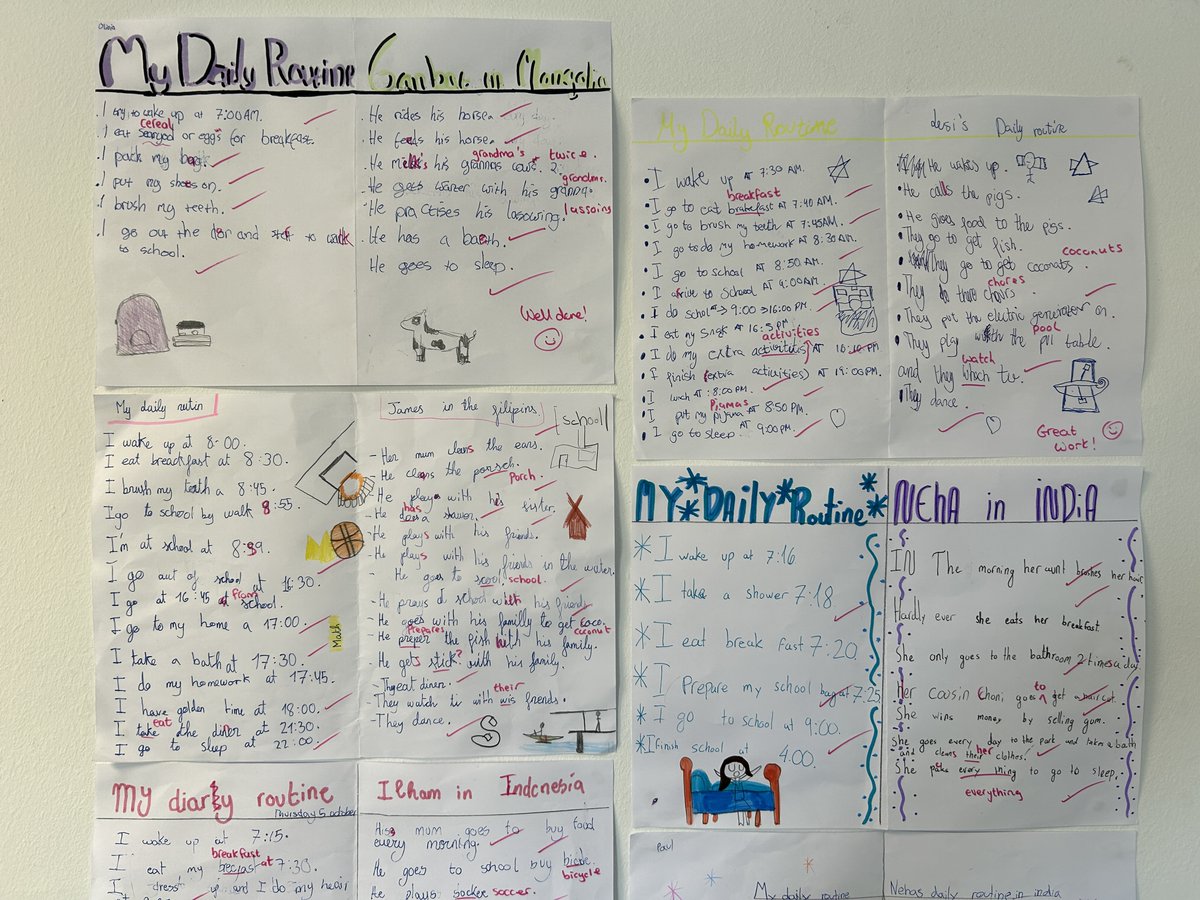 Olivia
My Daily Routine
I try to wake up at 7:00AM.
cereal
or eggs for breakfast.
I pack my bag.
I put my shoes on.
I brush my teeth.
I go out the door and to walk
to school.
Ganbu in Mongolia
He rides his horse.
He feeds his horse.
grandma's twice.
He milk's his grannas cows. 2.
grandma.
He gets warter with his granna.
He practises his lasowing. lassoing
He has a bath.
He goes to sleep.
Well done!
My Daily Routine
I wake up AT 7:30 AM.
breakfast
I go to eat brakefast AT 7:40 AM.
I go to brush my teeth AT 7:45AM.
I go to do my homework AT 8:30AM.
I go to school AT 8:50 AM.
I arive to school AT 9:00AM.
I do school → 9:00 → 16:00 PM.
I eat my AT 16:5 PM.
activities
I do my extra AT 16:10 PM.
I finish (extra activities) AT 19:00PM.
I lunch AT :8:00 PM.
pijamas
I put my pijama AT 8:50 PM.
I go to sleep. AT 9:00PM.
desi's Daily routine
He wakes up.
He calls the pigs.
He gives food to the pigs.
They go to get fish.
coconuts
They go to get coconats.
chores
They do there chours
They put the electric generator on.
pool
They play the pul table.
watch
and they whach tv.
They dance.
Great
work!
My daily rutin
I wake up at 8:00.
I eat breackfast at 8:30.
I brush my teeth a 8:45
I go to school by walk 8:55
I'm at school at 8:59
I go out of school at 16:30
from
I go at 16:45 school.
I go to my home a 17:00
Math
I take a bath at 17:30
I do my homework at 17:45
I have golden time at 18:00
eat
I take the diner at 21:30
I go to sleep at 22:00
James in the filipins
school
- Her mum cleans the ears.
- He cleans the porsch. Porch
- He plays with his sister.
has
- He does a shower.
- He plays with his friends.
- He plays with his friends in the water.
- He goes to scool. school.
- He prays a school with his friends
- He goes with his familly to get coco.
coconut
Prepares
- He preper the fish with his family.
- He gets stick? with his family.
- They eat diner.
their
- They watch tv with wis friends.
- They dance.
MY DAILY Routine
I wake up at 7:16
I take a shower 7:18
I eat break fast 7:20
I Prepare my school bag at 7:25
I go to school at 9:00
I finish school at 4:00
NEHA in INDIA
IN The morning her aunt brushes her hair.
Hardly ever she eats her breakfast.
She only goes to the bathroom 2 times a day
to
Her cousin Choni goes get a haircut.
She wins money by selling gom.
She goes every day to the park and takes a bath
her
and cleans their clothes.
She every thing to go to sleep.
everything
My diary routine
Thursday 5 october
I wake up at 7:15.
breakfast
I eat my at 7:30
I dress up and I do my heair
Ilham in Indonesia
His mum goes to buy food
every morning.
He goes to school buy bicicle.
bicycle
He plays socker soccer.
Paul
My daily routine
Nehas daily routine in india